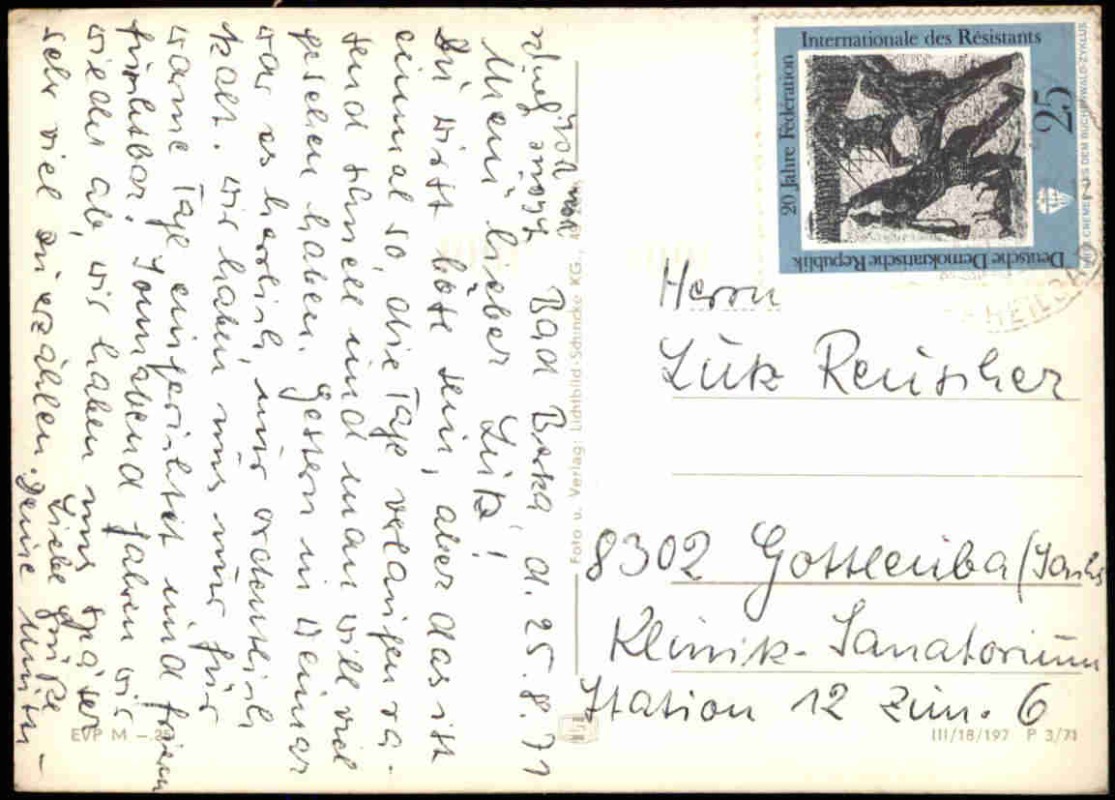 Bad Berka, d. 25. 8. 71
Mein lieber Lutz!
Du wirst böse sein, aber das ist
einmal so, die Tage verlangen ra-
send schnell und man will viel
gesehen haben. Gestern in Weimar
war es herrlich, nur ordentlich
kalt. Wir haben uns nur für
warme Tage eingerichtet und frieren
furchtbar. Sonnabend fahren wir
wieder ab, wir haben uns später
sehr viel zu erzählen.
Liebe Grüße
Deine
Foto u. Verlag: Lichtbild-Schincke KG.,
EVP M
Internationale des Résistants
20 Jahre Fédération
25
Deutsche Demokratische Republik
CREMER: AUS DEM BUCHENWALD-ZYKLUS
Herrn
Lutz Reuscher
8302 Gottleuba/Sachs
Klinik-Sanatorium
Station 12 Zim. 6
III/18/197 P 3/71